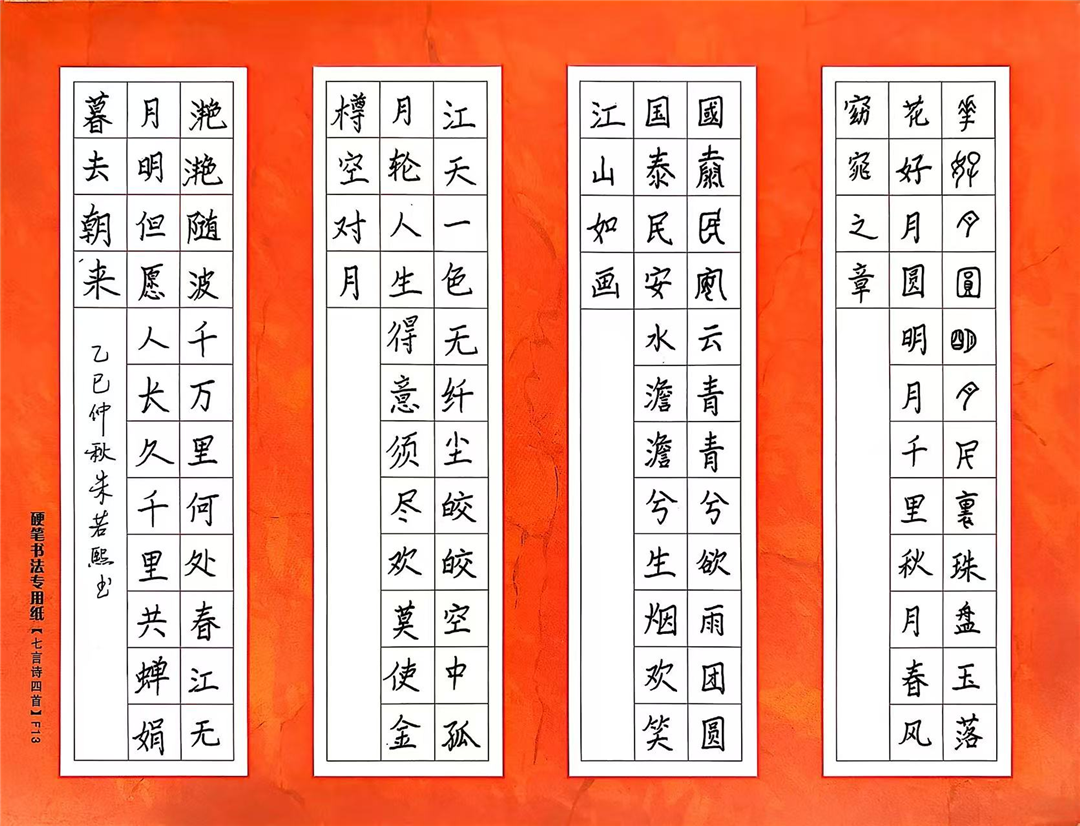 華好月圓明月裏珠盘玉落
花好月圆明月千里秋月春风
窈窕之章
國民風云青青兮欲雨团圆
国泰民安水澹澹兮生烟欢笑
江山如画
江天一色无纤尘皎皎空中孤
月轮人生得意须尽欢莫使金
樽空对月
滟滟随波千万里何处春江无
月明但愿人长久千里共蝉娟
暮去朝来
乙巳仲秋朱若熙书
硬笔书法专用纸【七言诗四首】F13